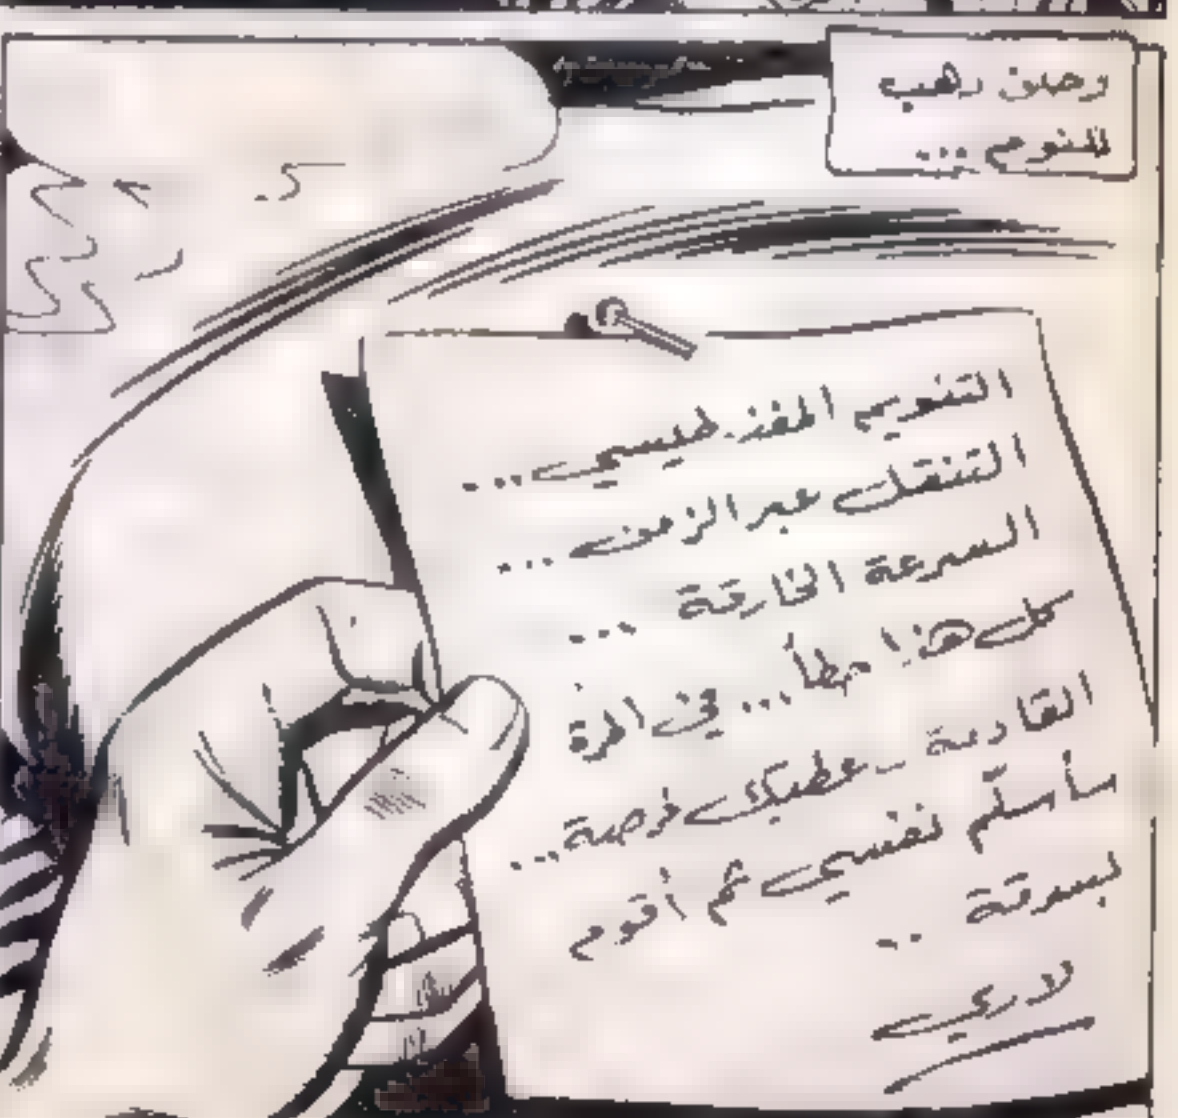 وحين ذهب
للنوم ...
التنويم المغنطيسي ...
التنقل عبر الزمن ...
السرعة الخارقة ...
كل هذا خطأ ... في المرة
القادمة فرصة ...
سأسلّم نفسي ثم أقوم
بسرقة ..
لاري